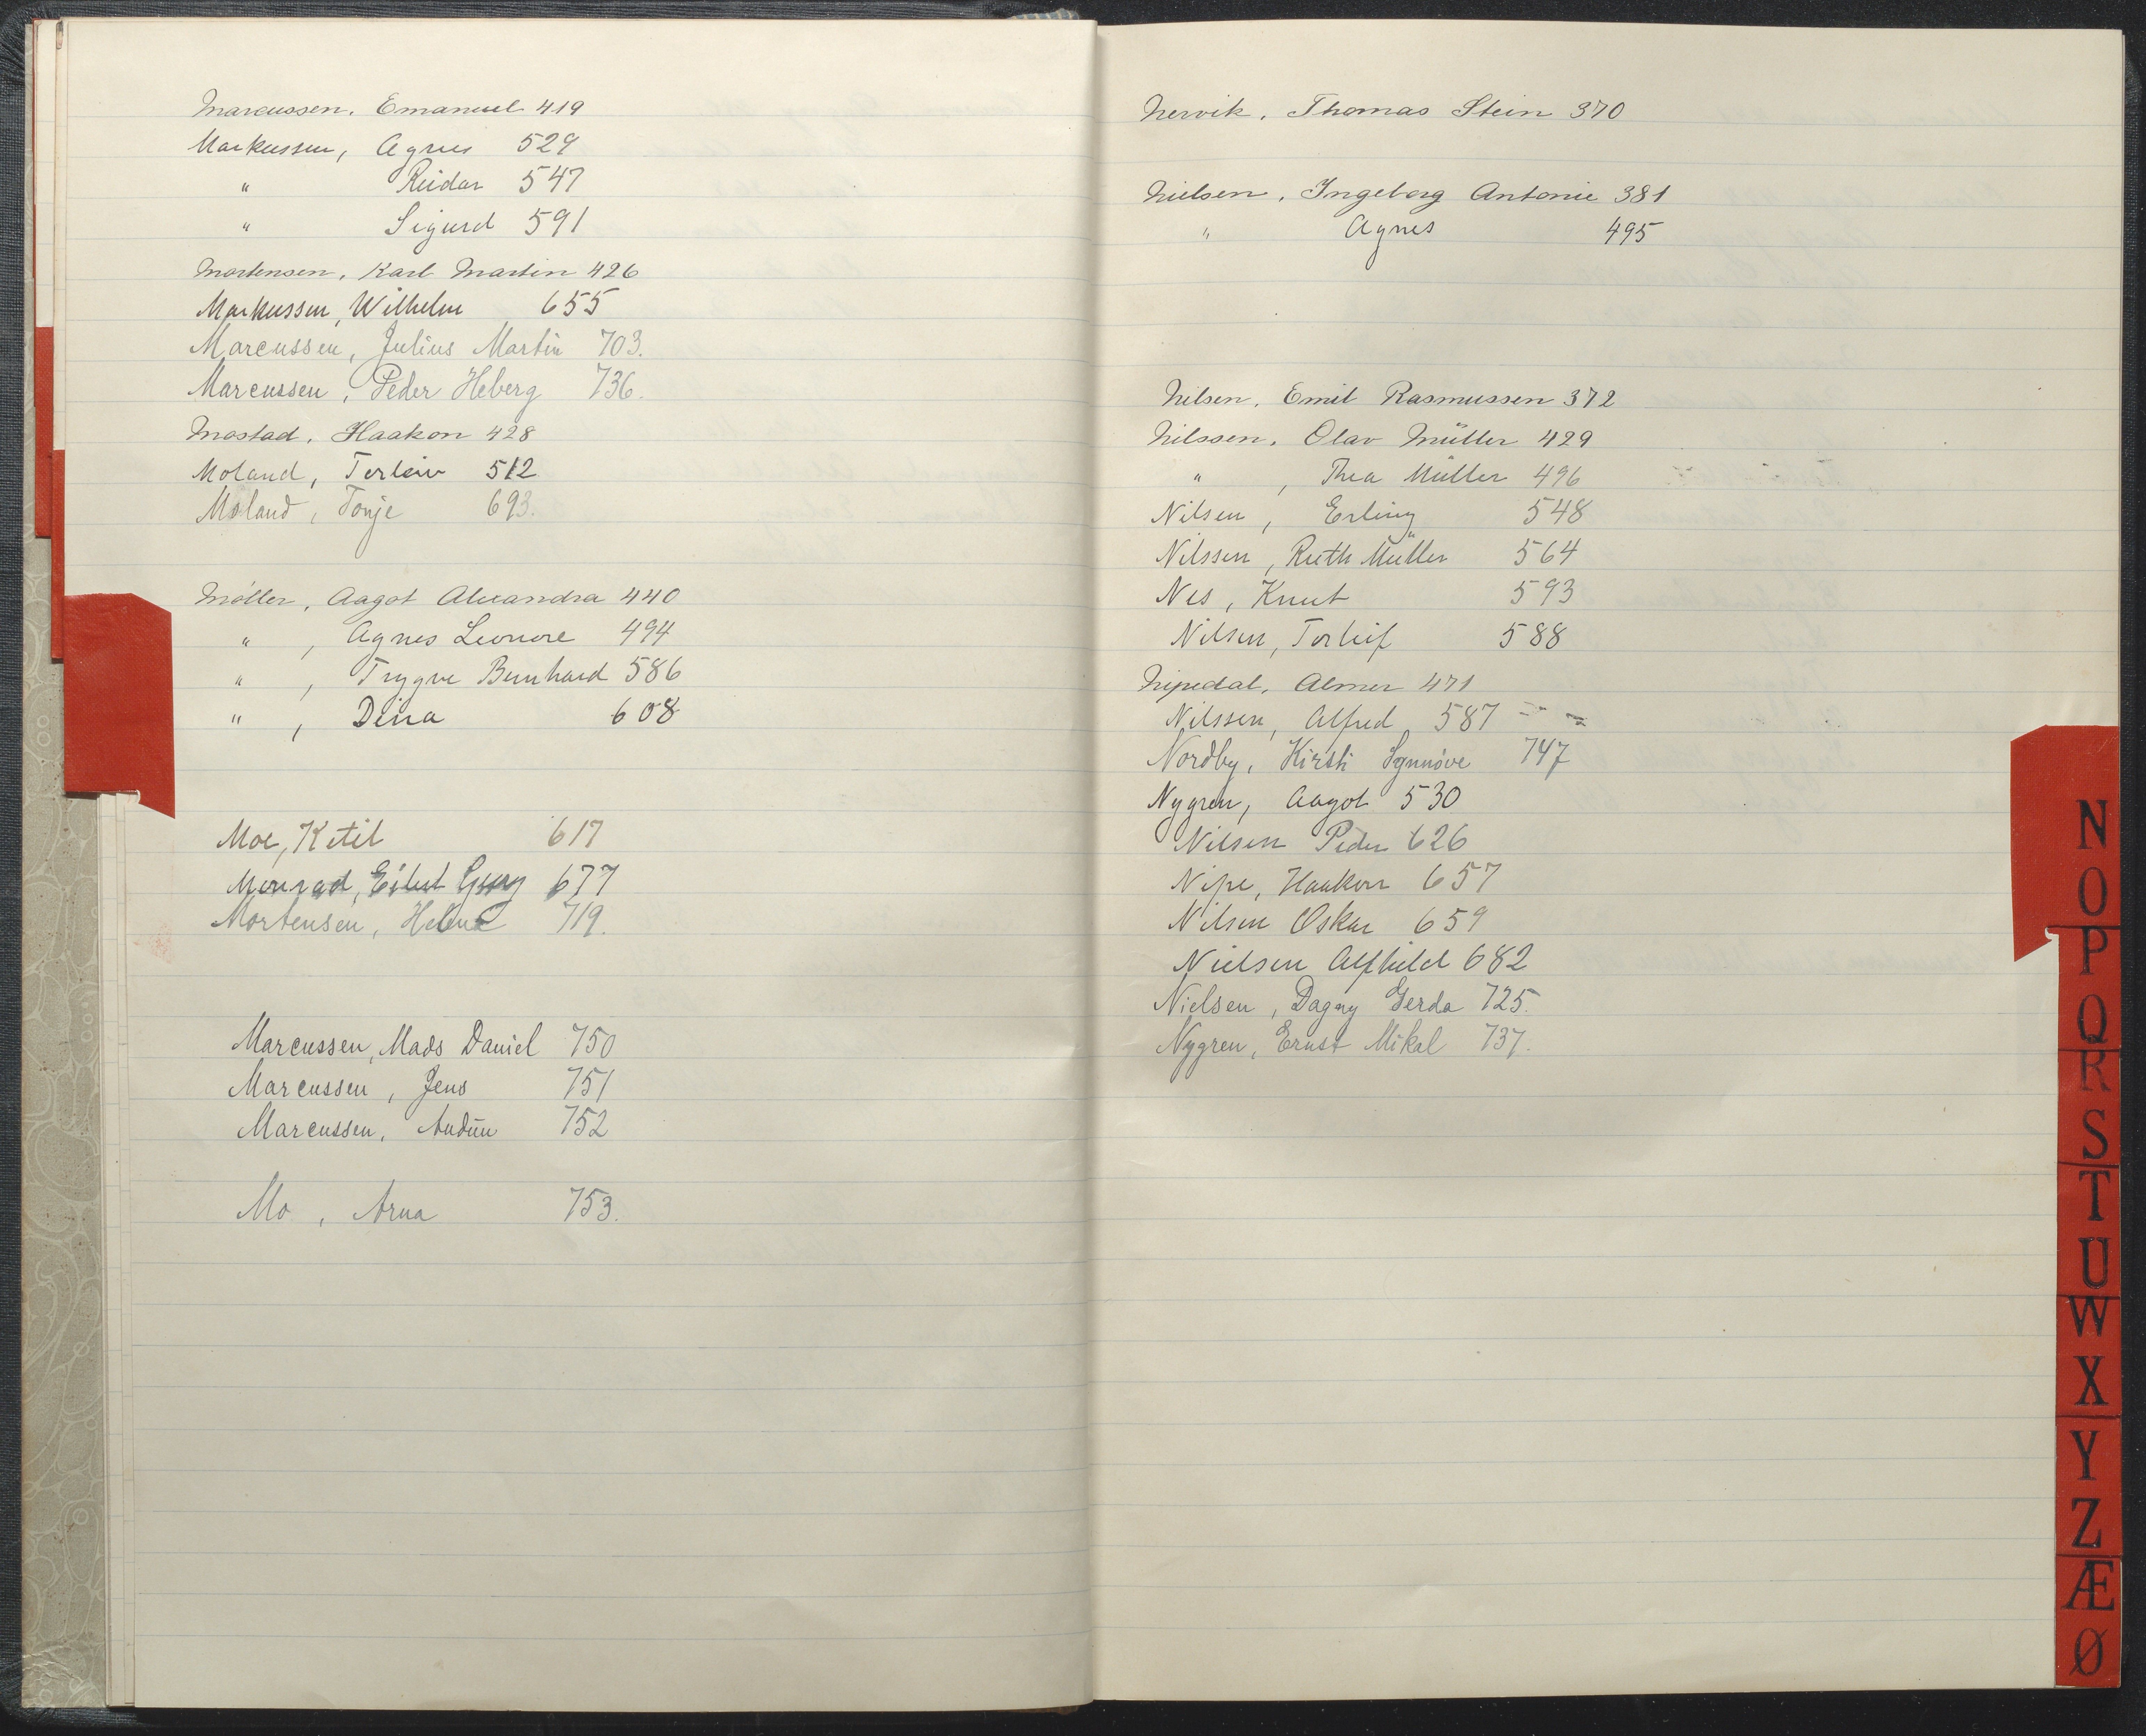 Marcussen. Emanuel 419
Markussen, Agnes 529
" Reidar 547
" Sigurd 591
Mortensen, Karl Martin 426
Markussen, Wilhelm 655
Marcussen, Julius Martin 703.
Marcussen, Peder Heberg 736.
Mostad, Haakon 428
Moland, Terleiv 512
Moland, Tonje 693.
Møller, Aagot Alexandra 440
" , Agnes Leonore 494
" , Trygve Bernhard 586
" , Dina 608
Moe, Ketil 617
Monrad, Eilert Georg 677
Mortensen, 719.
Marcussen, Mads Daniel 750
Marcussen, Jens 751
Marcussen, Audun 752
Mo, Arna 753.
Nervik, Thomas Stein 370
Nielsen, Ingeborg Antonie 381
" Agnes 495
Nilsen, Emil Rasmussen 372
Nilssen, Olav Müller 429
" , Thea Müller 496
Nilsen, Erling 548
Nilssen, Ruth Müller 564
Nes, Knut 593
Nilsen, Torleif 588
Nipedal, Almer 471
Nilssen, Alfred 587
Nordby, Kirsti Synnöve 747
Nygren, Aagot 530
Nilsen Peder 626
Nipe, Haakon 657
Nilsen Oskar 659
Nielsen Alfhild 682
Nielsen, Dagny Gerda 725.
Nygren, Ernst Mikal 737.
N
O
P
Q
R
S
T
U
W
X
Y
Z
Æ
Ø